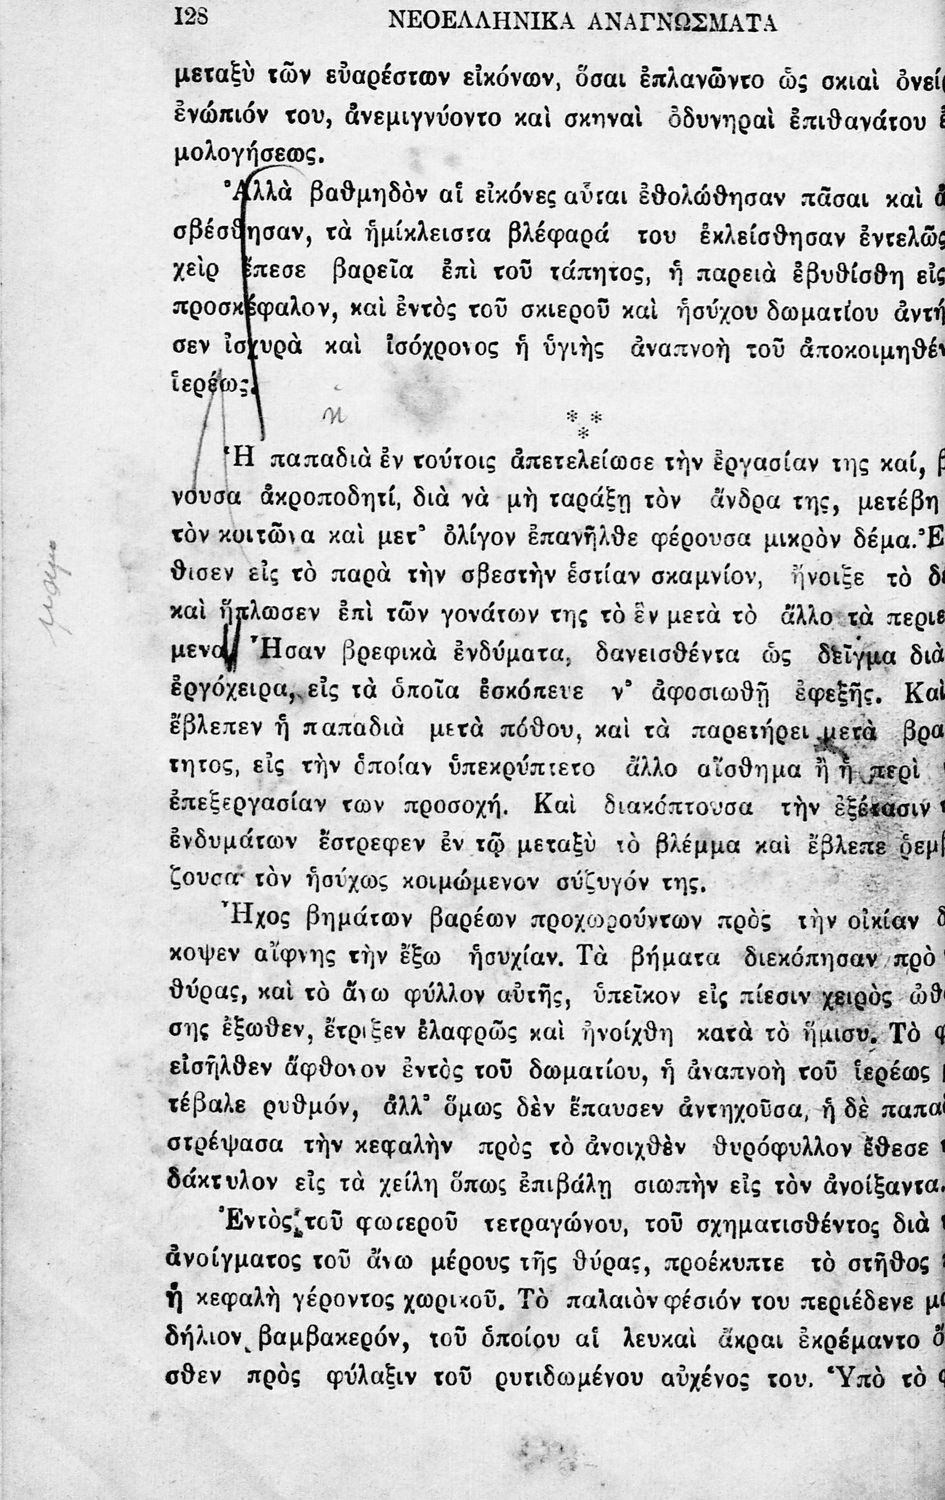 128 ΝΕΟΕΛΛΗΝΙΚΑ ΑΝΑΓΝΩΣΜΑΤΑ
μεταξὺ τῶν εὐαρέστων εἰκόνων, ὅσαι ἐπλανῶντο ὡς σκιαὶ ὀνεί
ἐνώπιόν του, ἀνεμιγνύοντο καὶ σκηναὶ ὀδυνηραὶ ἐπιθανάτου
μολογήσεως.
Ἀλλὰ βαθμηδὸν αἱ εἰκόνες αὗται ἐθολώθησαν πᾶσαι καὶ ἀ
σβέσθησαν, τὰ ἡμίκλειστα βλέφαρά του ἐκλείσθησαν ἐντελῶς
χεὶρ ἔπεσε βαρεῖα ἐπὶ τοῦ τάπητος, ἡ παρειὰ ἐβυθίσθη εἰς
προσκέφαλον, καὶ ἐντὸς τοῦ σκιεροῦ καὶ ἡσύχου δωματίου ἀντή
σεν ἰσχυρὰ καὶ ἰσόχρονος ἡ ὑγιὴς ἀναπνοὴ τοῦ ἀποκοιμηθέν
ἱερέως.
* * *
Ἡ παπαδιὰ ἐν τούτοις ἀπετελείωσε τὴν ἐργασίαν της καί, β
νουσα ἀκροποδητί, διὰ νὰ μὴ ταράξῃ τὸν ἄνδρα της, μετέβη
τὸν κοιτῶνα καὶ μετ' ὀλίγον ἐπανῆλθε φέρουσα μικρὸν δέμα. Ἐ
θισεν εἰς τὸ παρὰ τὴν σβεστὴν ἑστίαν σκαμνίον, ἤνοιξε τὸ δέ
καὶ ἥπλωσεν ἐπὶ τῶν γονάτων της τὸ ἓν μετὰ τὸ ἄλλο τὰ περιε
μενα. Ἦσαν βρεφικὰ ἐνδύματα, δανεισθέντα ὡς δεῖγμα διὰ
ἐργόχειρα, εἰς τὰ ὁποῖα ἐσκόπευε ν' ἀφοσιωθῇ ἐφεξῆς. Καὶ
ἔβλεπεν ἡ παπαδιὰ μετὰ πόθου, καὶ τὰ παρετήρει μετὰ βρα
τητος, εἰς τὴν ὁποίαν ὑπεκρύπτετο ἄλλο αἴσθημα ἢ ἡ περὶ
ἐπεξεργασίαν των προσοχή. Καὶ διακόπτουσα τὴν ἐξέτασιν τ
ἐνδυμάτων ἔστρεφεν ἐν τῷ μεταξὺ τὸ βλέμμα καὶ ἔβλεπε ῥεμβ
ζουσα τὸν ἡσύχως κοιμώμενον σύζυγόν της.
Ἦχος βημάτων βαρέων προχωρούντων πρὸς τὴν οἰκίαν δ
κοψεν αἴφνης τὴν ἔξω ἡσυχίαν. Τὰ βήματα διεκόπησαν πρὸ
θύρας, καὶ τὸ ἄνω φύλλον αὐτῆς, ὑπεῖκον εἰς πίεσιν χειρὸς ὠθ
σης ἔξωθεν, ἔτριξεν ἐλαφρῶς καὶ ἠνοίχθη κατὰ τὸ ἥμισυ. Τὸ φ
εἰσῆλθεν ἄφθονον ἐντὸς τοῦ δωματίου, ἡ ἀναπνοὴ τοῦ ἱερέως
τέβαλε ρυθμόν, ἀλλ' ὅμως δὲν ἔπαυσεν ἀντηχοῦσα, ἡ δὲ παπα
στρέψασα τὴν κεφαλὴν πρὸς τὸ ἀνοιχθὲν θυρόφυλλον ἔθεσε
δάκτυλον εἰς τὰ χείλη ὅπως ἐπιβάλῃ σιωπὴν εἰς τὸν ἀνοίξαντα.
Ἐντὸς τοῦ φωτεροῦ τετραγώνου, τοῦ σχηματισθέντος διὰ τ
ἀνοίγματος τοῦ ἄνω μέρους τῆς θύρας, προέκυπτε τὸ στῆθος
ἡ κεφαλὴ γέροντος χωρικοῦ. Τὸ παλαιὸν φέσιόν του περιέδενε μα
δήλιον βαμβακερόν, τοῦ ὁποίου αἱ λευκαὶ ἄκραι ἐκρέμαντο ὄ
σθεν πρὸς φύλαξιν τοῦ ρυτιδωμένου αὐχένος του. Ὑπὸ τὸ φ